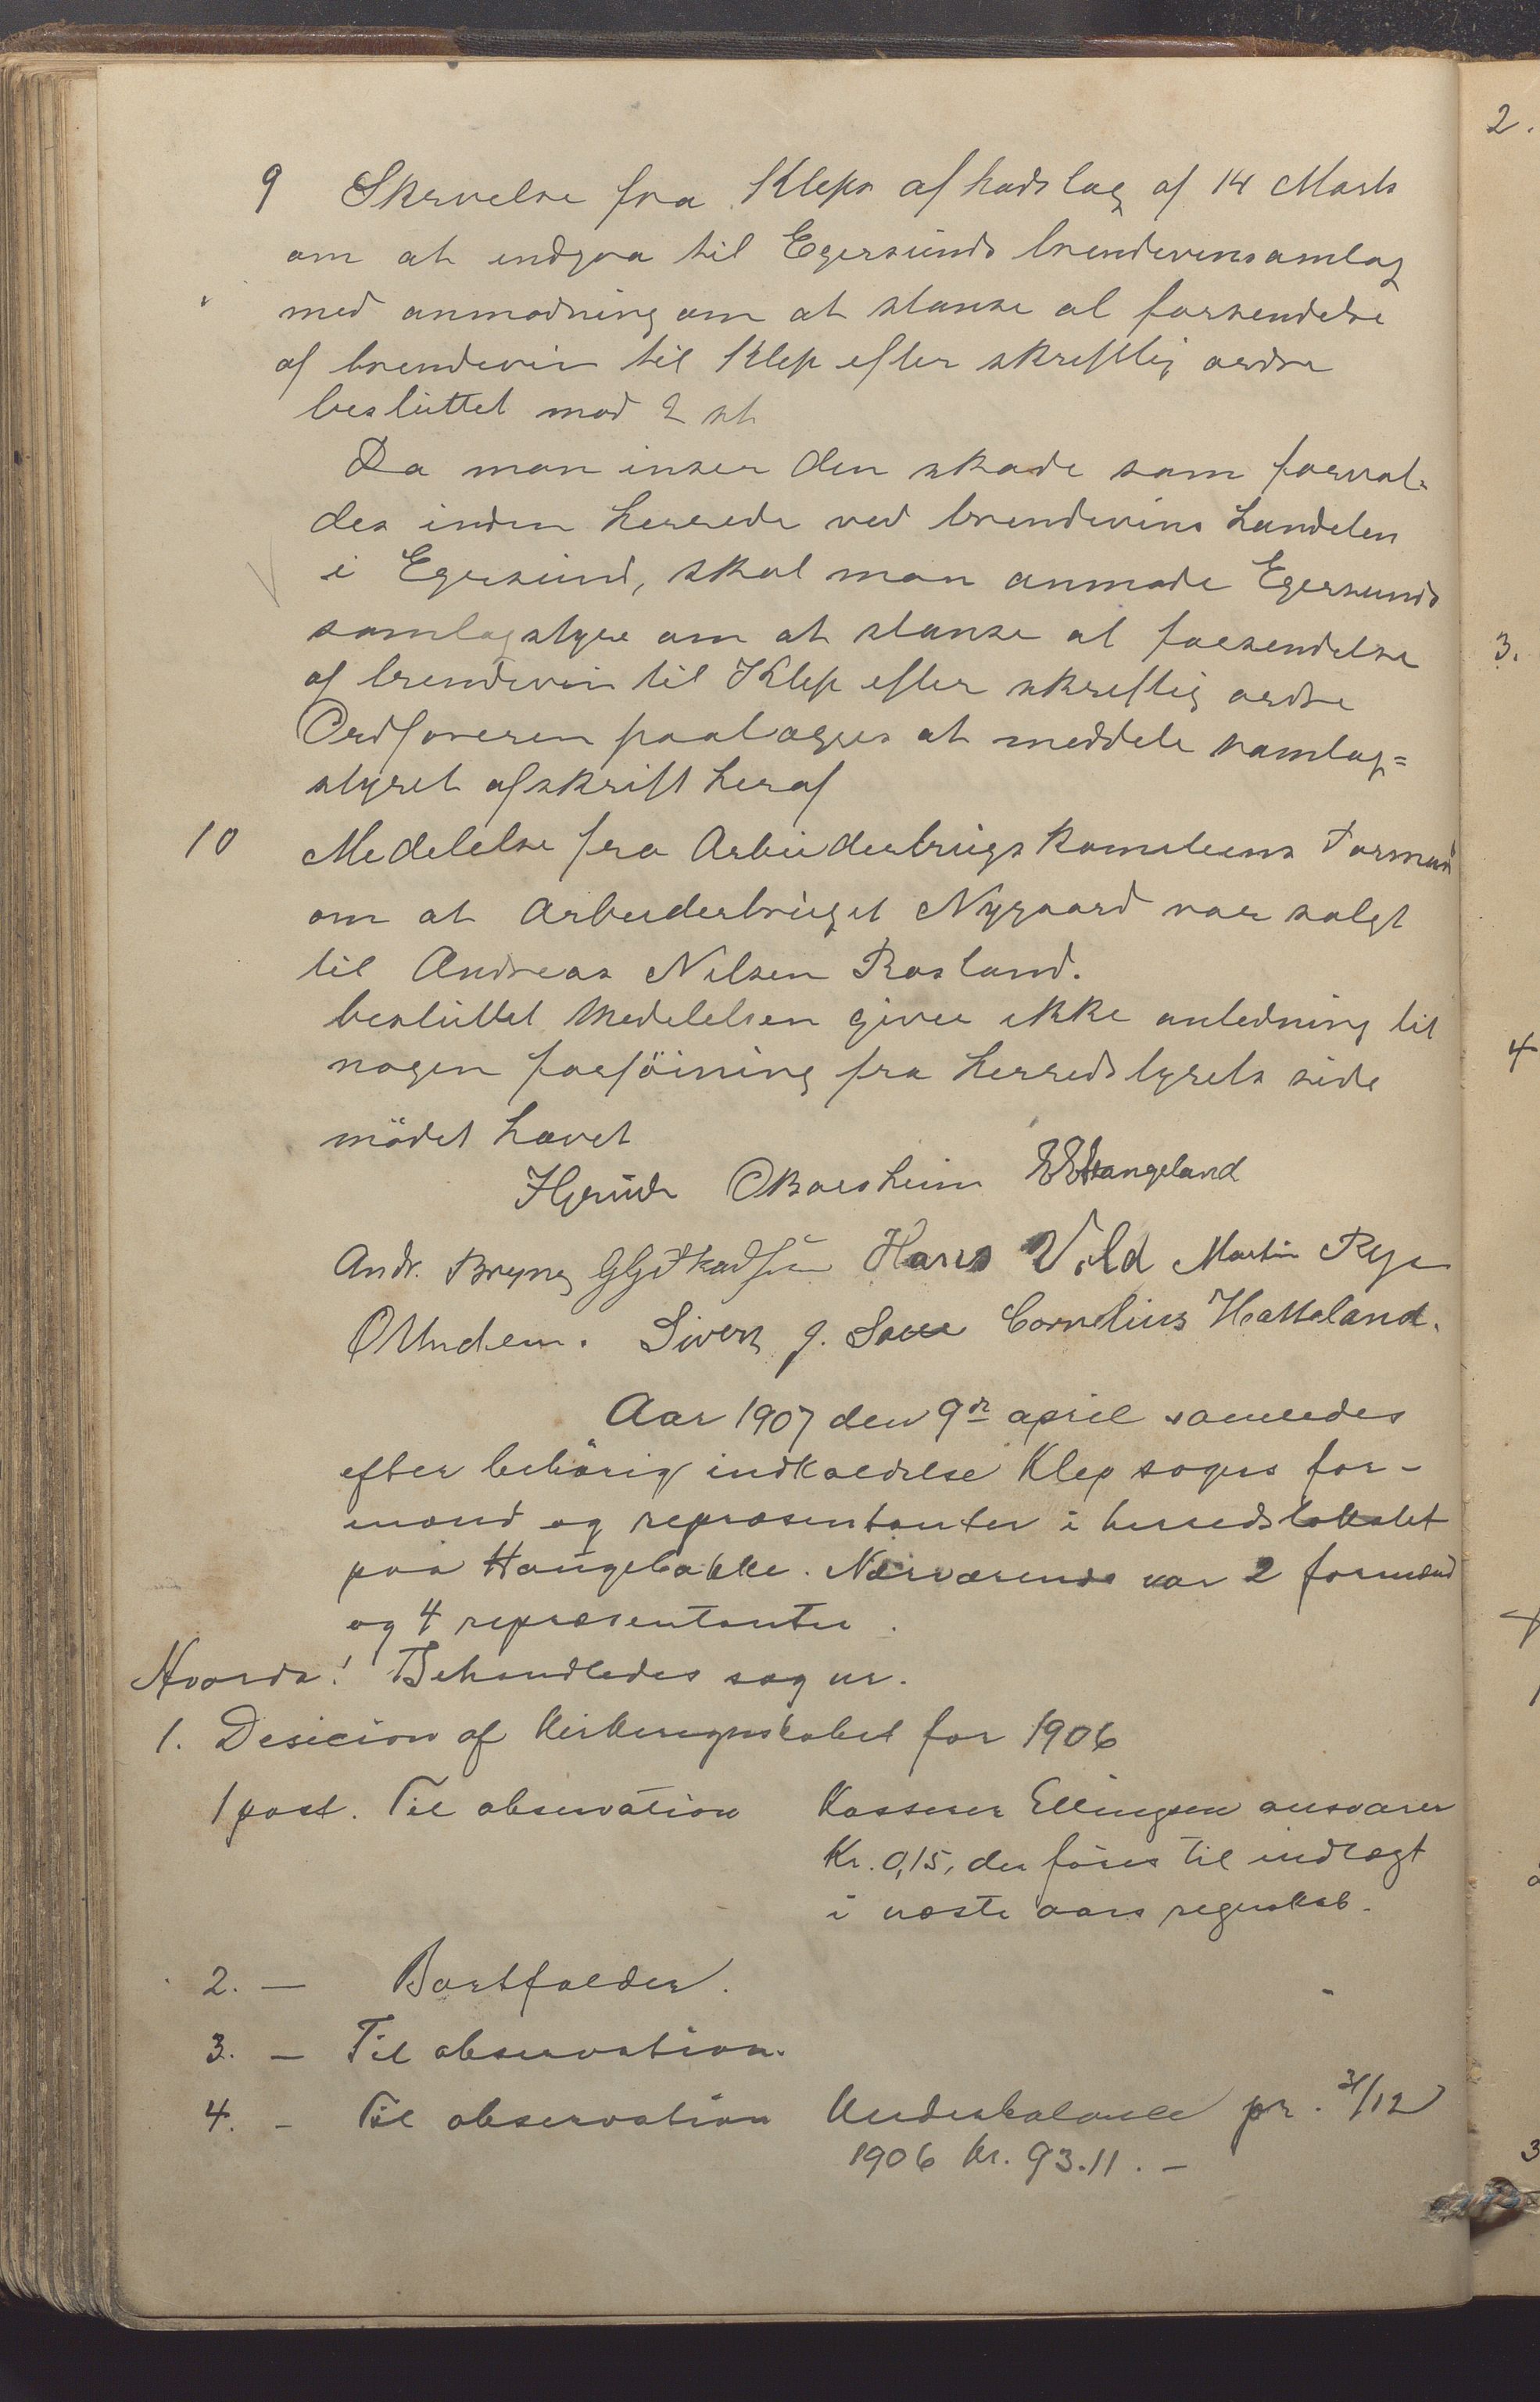 9 Skrivelse fra Kleps afholdslag af 14 Marts
om at indgaa til Egersunds brændevinsamlag
med anmodning om at stanse al forsendelse
af brendevin til Klep efter skriftlig ordre
besluttet mod 2 st
Da man inser den skade som forvol-
des inden herrede ved brendevins handelen
i Egersund, skal man anmode Egersunds
samlagstyre om at stanse al forsendelse
af brendevin til Klep efter skreftlig ordre
Ordføreren paalægges at meddele samlag=
styret afskrift heraf
10 Medelelse fra Arbeiderbrugskomiteens Formand
om at Arbeiderbruget Nygaard var solgt
til Andreas Nilsen Rosland.
besluttet Medelelsen giver ikke anledning til
nogen forföining fra herredstyrets side
mödet hævet
OBorsheim EEHangeland
Andr. Bryne Hans Vold Martin Rye
OUndem. Sivert J. Cornelius Hatteland.
Aar 1907 den 9de april samledes
efter behörig indkaldelse Klep sogns for-
mænd og repræsentanter i herredslokalet
paa Haugebakke. Nærværende var 2 formænd
og 4 repræsentanter.
Hvorda! Behandledes sag nr.
1. Desicion af Kirkeregnskabet for 1906
1 post. Til observation Kasserer Ellingsen ansvarer
Kr. 0,15, der föres til indtægt
i næste aars regnskab.
2. — Bortfalder.
3. — Til observation.
4. - Til observation Underbalance pr. 31/12
1906 kr. 93.11. —
2.
3.
4
3